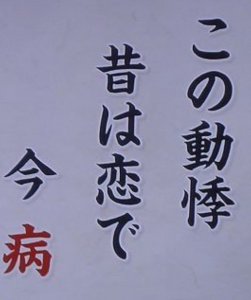 この動悸
昔は恋で
今病